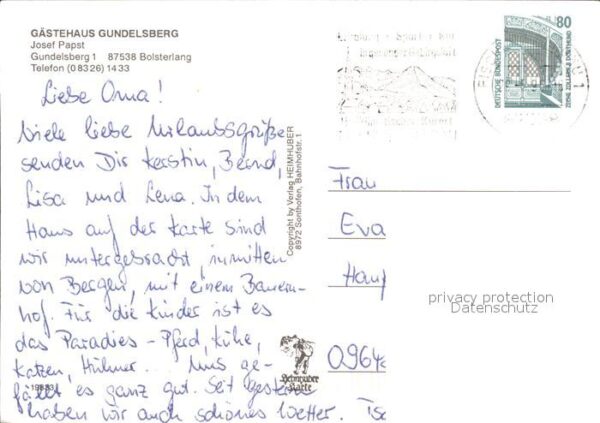 GÄSTEHAUS GUNDELSBERG
Josef Papst
Gundelsberg 1 87538 Bolsterlang
Telefon (0 83 26) 14 33
Liebe Oma!
Viele liebe Urlaubsgrüße
senden Dir Kerstin, Bernd,
Lisa und Lena. In dem
Haus auf der Karte sind
wir untergebracht, inmitten
von Bergen, mit einem Bauern-
hof. Für die Kinder ist es
das Paradies - Pferd, Kühe,
Katzen, Hühner... Uns ge-
fällt es ganz gut. Seit gestern
haben wir auch schönes Wetter.
Copyright by Verlag HEIMHUBER
8972 Sonthofen, Bahnhofstr. 1
80
DEUTSCHE BUNDESPOST
ZECHE ZOLLERN 2 DORTMUND
Frau
Eva
privacy protection
Datenschutz
Heimhuber
Karte